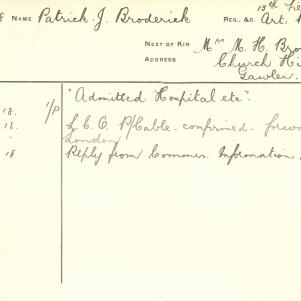 13th Fie
8 NAME Patrick. J. Broderick REG. &C. Art.
NEXT OF KIN Mrs M. H. Bro
ADDRESS Church Hi
Gawler.
18. I/P "Admitted Hospital etc".
18. L.C.O. P/Cable - confirmed.
London/
18 Reply from Commun. Information